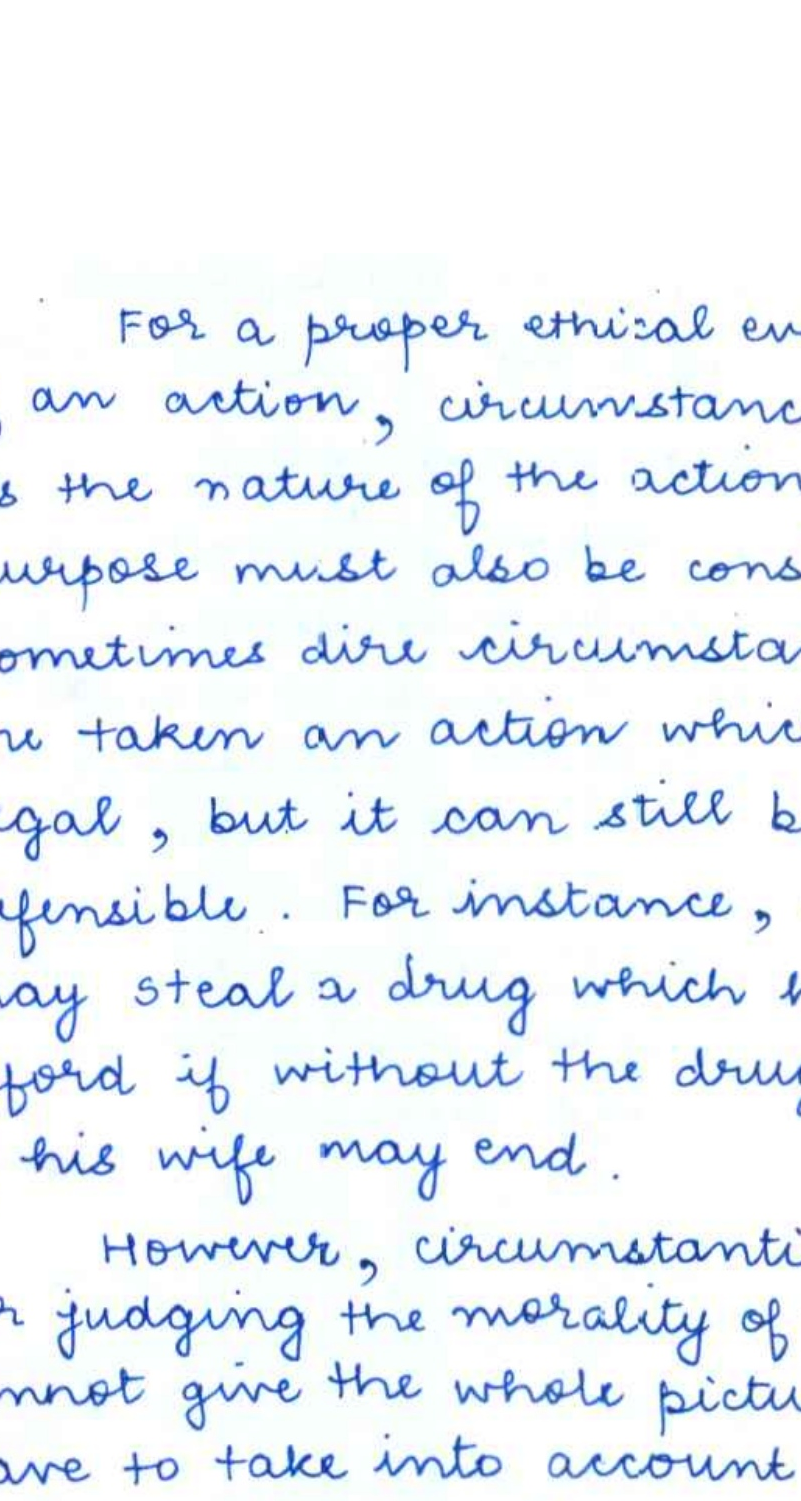 For a proper ethical ev
, an action, circumstanc
s the nature of the action
urpose must also be cons
ometimes dire circumsta
ne taken an action whic
gal, but it can still b
fensible. For instance,
ay steal a drug which h
ford if without the drug
his wife may end.
However, circumstanti
r judging the morality of
nnot give the whole pictu
ave to take into account